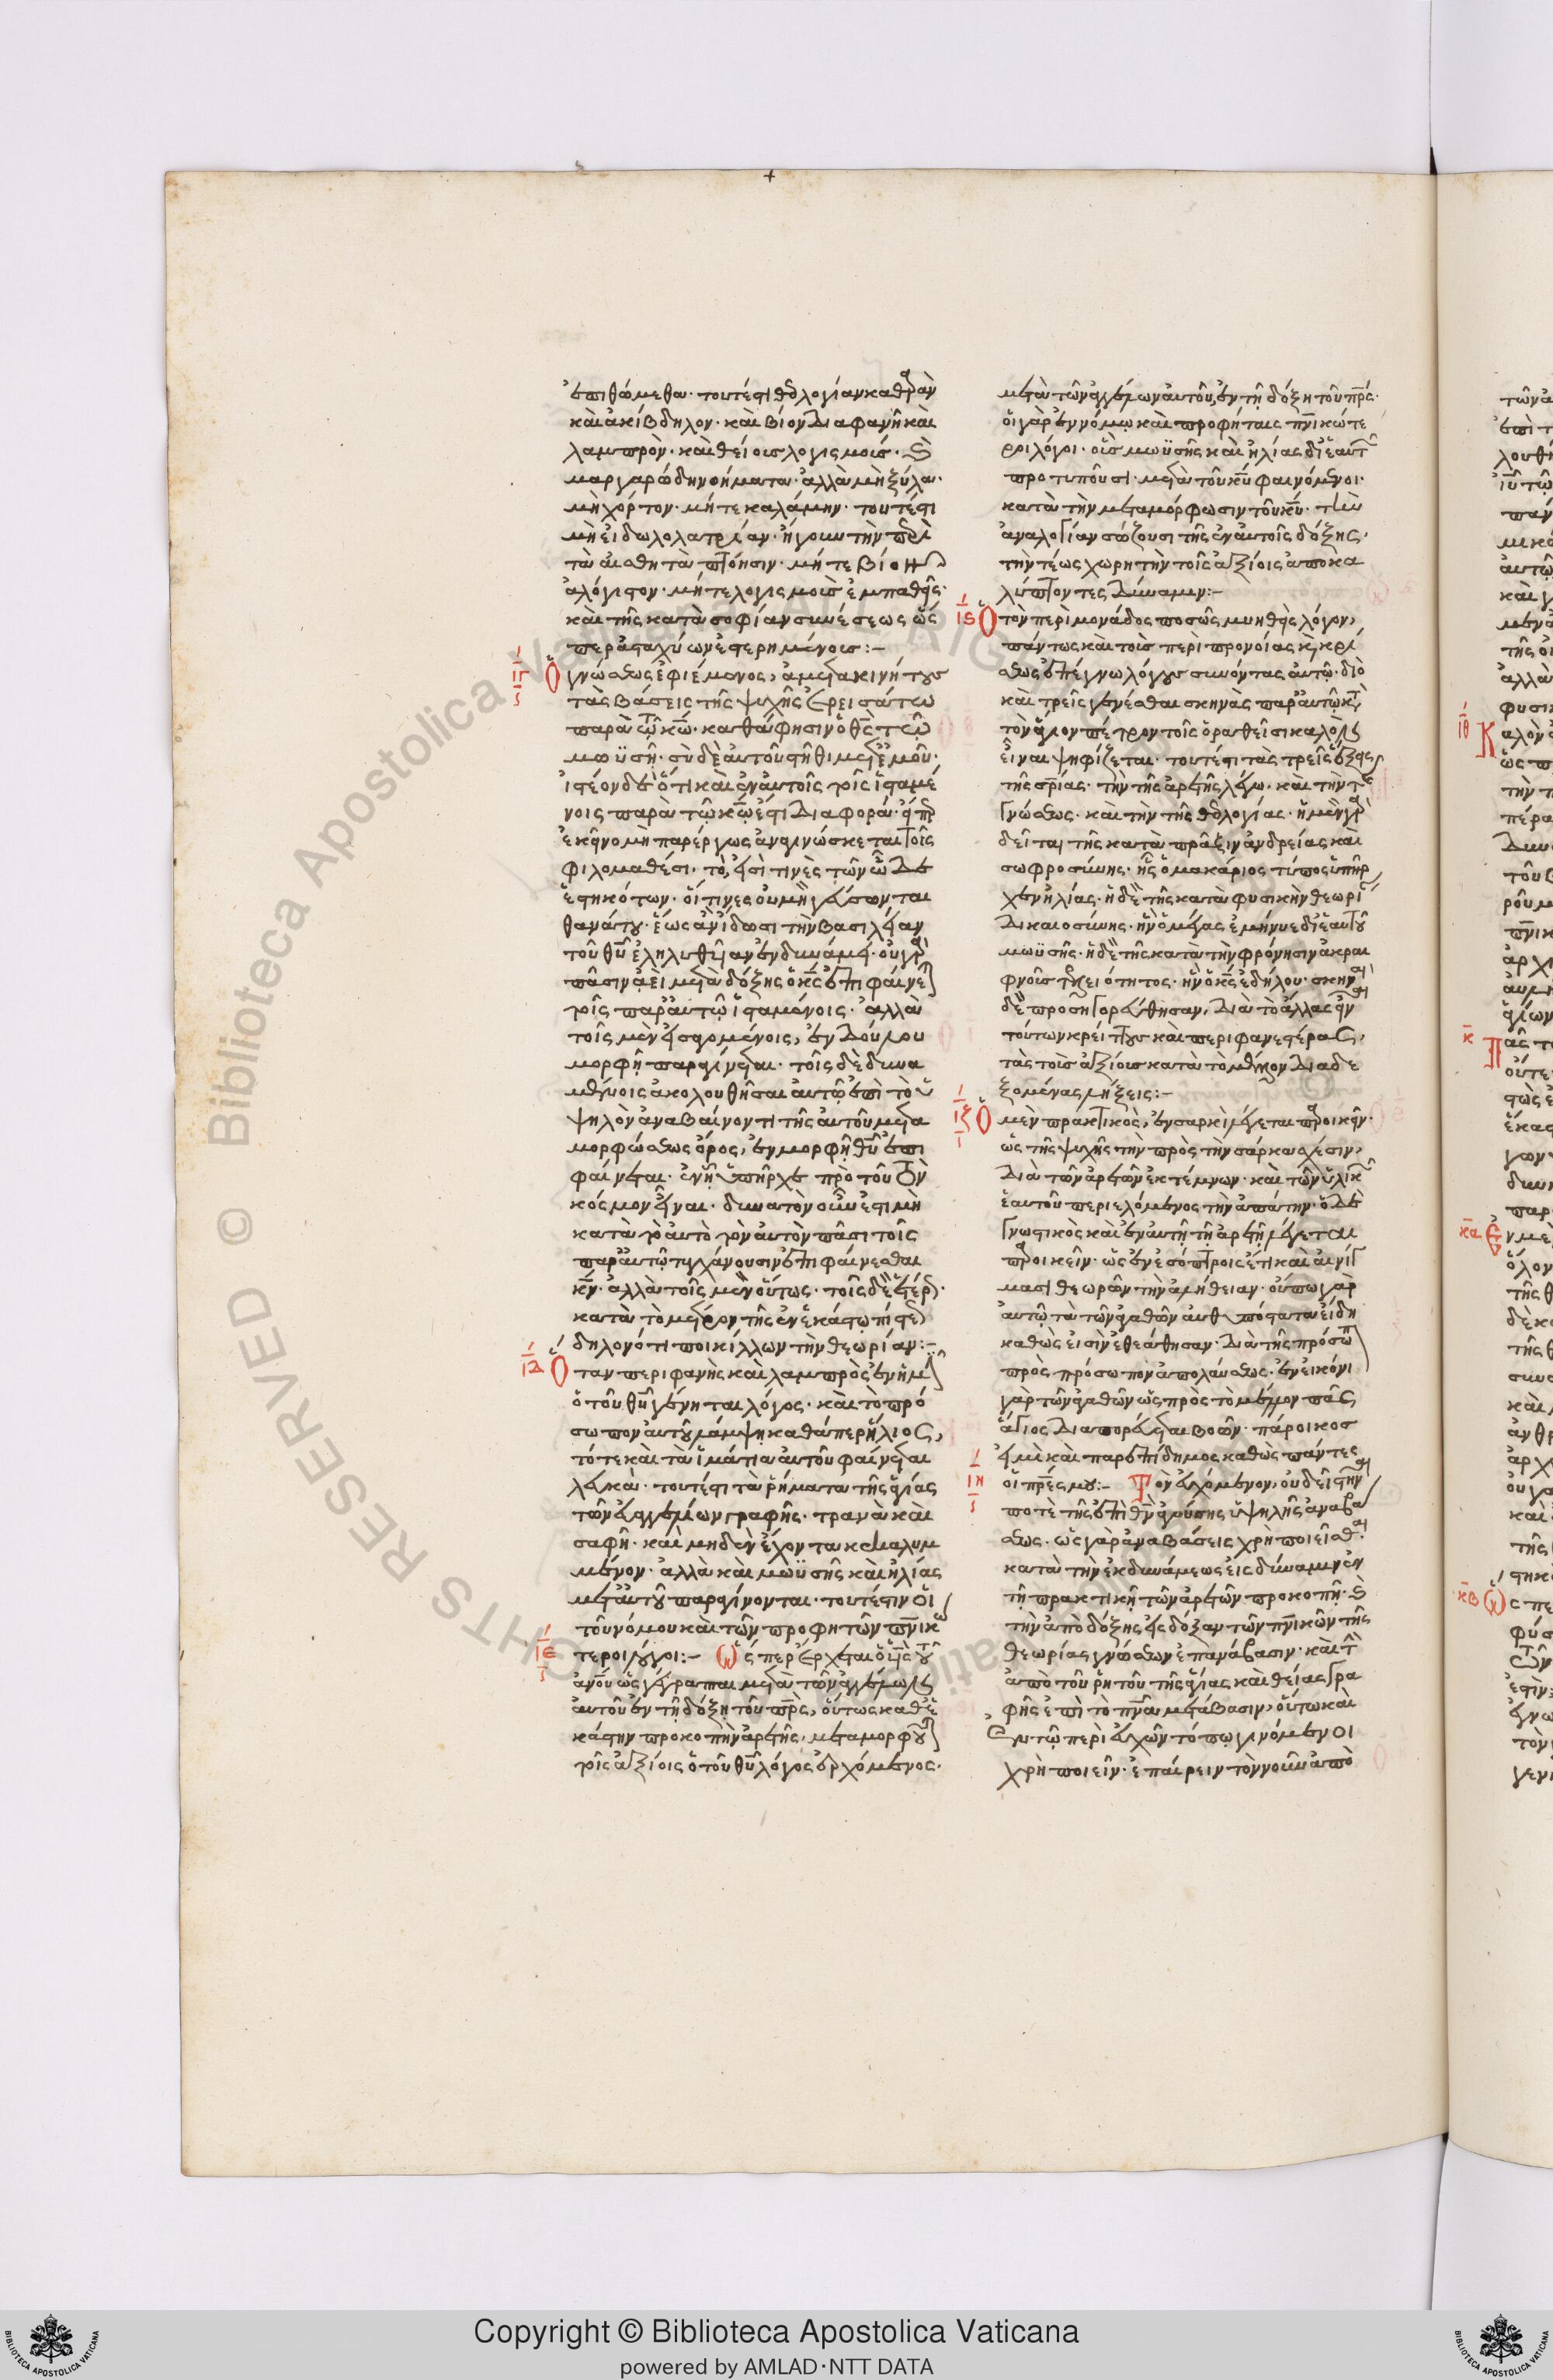 ἐπιθώμεθα· τουτέστι θεολογίαν καθαρὰν
καὶ ἀκίβδηλον· καὶ βίον διαφανῆ καὶ
λαμπρόν· καὶ θείους λογισμούς·
μαργαρώδη νοήματα· ἀλλὰ μὴ ξύλα·
μὴ χόρτον· μήτε καλάμην· τουτέστι
μὴ εἰδωλολατρίαν· ἤγουν τὴν περὶ
τὰ αἰσθητὰ πτόησιν· μήτε βίον
ἀλόγιστον· μήτε λογισμοὺς ἐμπαθεῖς·
καὶ τῆς κατὰ σοφίαν συνέσεως ὥσ
περ ἀσταχύων ἐστερημένους:–
ιγ Ὁ γνώσεως ἐφιέμενος, ἀμετακινήτους
τὰς βάσεις τῆς ψυχῆς ἐρεισάτω
παρὰ τῷ κω̅· καθά φησιν ὁ θς̅ τῷ
μωϋσῇ· σὺ δὲ αὐτοῦ στῆθι μετ' ἐμοῦ·
ἰστέον δὲ ὅτι καὶ ἐν αὐτοῖς τοῖς ἱσταμέ
νοις παρὰ τῷ κω̅ ἐστι διαφορά· εἴπερ
ἐκεῖνο μὴ παρέργως ἀναγινώσκεται τοῖς
φιλομαθέσι· τὸ, εἰσί τινες τῶν ὧδε
ἑστηκότων· οἵτινες οὐ μὴ γεύσωνται
θανάτου· ἕως ἂν ἴδωσι τὴν βασιλείαν
τοῦ θυ̅ ἐληλυθυῖαν ἐν δυνάμει· οὐ γὰρ
πᾶσιν ἀεὶ μετὰ δόξης ὁ κς̅ ἐπιφαίνεται
τοῖς παρ' αὐτῷ ἱσταμένοις· ἀλλὰ
τοῖς μὲν εἰσαγομένοις, ἐν δούλου
μορφῇ παραγίνεται· τοῖς δὲ δυνα
μένοις ἀκολουθῆσαι αὐτῷ ἐπὶ τὸ ὑ
ψηλὸν ἀναβαίνοντι τῆς αὐτοῦ μετα
μορφώσεως ὄρος, ἐν μορφῇ θυ̅ ἐπι
φαίνεται· ἐν ᾗ ὑπῆρχε πρὸ τοῦ τὸν
κόσμον εἶναι· δυνατὸν οὖν ἐστι μὴ
κατὰ τὸ αὐτὸ τὸν αὐτὸν πᾶσι τοῖς
παρ' αὐτῷ τυγχάνουσιν ἐπιφαίνεσθαι
κν̅· ἀλλὰ τοῖς μὲν οὕτως· τοῖς δὲ ἑτέρως·
κατὰ τὸ μέτρον τῆς ἐν ἑκάστῳ πίστεως
δηλονότι ποικίλλων τὴν θεωρίαν:–
ιδ Ὅταν περιφανὴς καὶ λαμπρὸς ἐν ἡμῖν
ὁ τοῦ θυ̅ γένηται λόγος· καὶ τὸ πρό
σωπον αὐτοῦ λάμψῃ καθάπερ ἥλιος,
τότε καὶ τὰ ἱμάτια αὐτοῦ φαίνεται
λευκά· τουτέστι τὰ ῥήματα τῆς ἁγίας
τῶν εὐαγγελίων γραφῆς· τρανὰ καὶ
σαφῆ· καὶ μηδὲν ἔχοντα κεκαλυμ
μένον· ἀλλὰ καὶ μωϋσῆς καὶ ἠλίας
μετ' αὐτοῦ παραγίνονται· τουτέστιν οἱ
τοῦ νόμου καὶ τῶν προφητῶν πν̅ικώ
τεροι λόγοι:– ιε Ὥσπερ ἔρχεται ὁ υς̅ τοῦ
ἀνο̅υ ὡς γέγραπται μετὰ τῶν ἀγγέλων
αὐτοῦ ἐν τῇ δόξῃ τοῦ πρς̅, οὕτως καθ' ἑ
κάστην προκοπὴν ἀρετῆς, μεταμορφοῦται
τοῖς ἀξίοις ὁ τοῦ θυ̅ λόγος ἐρχόμενος·
μετὰ τῶν ἀγγέλων αὐτοῦ, ἐν τῇ δόξῃ τοῦ πρς̅·
οἱ γὰρ ἐν νόμῳ καὶ προφήταις πν̅ικώτε
ροι λόγοι· οὓς μωϋσῆς καὶ ἠλίας δι' ἑαυτῶν
προτυποῦσι· μετὰ τοῦ κυ̅ φαινόμενοι·
κατὰ τὴν μεταμόρφωσιν τοῦ κυ̅· τὴν
ἀναλογίαν σώζουσι τῆς ἐν αὐτοῖς δόξης,
τὴν τέως χωρητὴν τοῖς ἀξίοις ἀποκα
λύπτοντες δύναμιν:–
ις Ὁ τὸν περὶ μονάδος ποσῶς μυηθεὶς λόγον,
πάντως καὶ τοὺς περὶ προνοίας καὶ κρί
σεως ἐπέγνω λόγους συνόντας αὐτῷ· διὸ
καὶ τρεῖς γενέσθαι σκηνὰς παρ' αὐτῷ κατὰ
τὸν ἅγιον πέτρον τοῖς ὁραθεῖσι καλὸν
εἶναι ψηφίζεται· τουτέστι τὰς τρεῖς ἕξεις
τῆς σρ̅ίας· τὴν τῆς ἀρετῆς λέγω· καὶ τὴν τῆς
γνώσεως· καὶ τὴν τῆς θεολογίας· ἡ μὲν γὰρ
δεῖται τῆς κατὰ πρᾶξιν ἀνδρείας καὶ
σωφροσύνης· ἧς ὁ μακάριος τύπος ὑπῆρ
χεν ἠλίας· ἡ δὲ τῆς κατὰ φυσικὴν θεωρίαν
δικαιοσύνης· ἣν ὁ μέγας ἐμήνυε δι' ἑαυτοῦ
μωϋσῆς· ἡ δὲ τῆς κατὰ τὴν φρόνησιν ἀκραι
φνοῦς τελειότητος· ἣν ὁ κς̅ ἐδήλου· σκηναὶ
δὲ προσηγορεύθησαν, διὰ τὸ ἄλλας εἶναι
τούτων κρείττους καὶ περιφανεστέρας,
τὰς τοὺς ἀξίους κατὰ τὸ μέλλον διαδε
ξομένας λήξεις:–
ιζ Ὁ μὲν πρακτικὸς, ἐν σαρκὶ λέγεται παροικεῖν·
ὡς τῆς ψυχῆς τὴν πρὸς τὴν σάρκα σχέσιν,
διὰ τῶν ἀρετῶν ἐκτέμνων· καὶ τῶν ὑλικῶν
ἑαυτοῦ περιελόμενος τὴν ἀπάτην· ὁ δὲ
γνωστικὸς καὶ ἐν αὐτῇ τῇ ἀρετῇ λέγεται
παροικεῖν· ὡς ἐν ἐσόπτροις ἔτι καὶ αἰνίγ
μασι θεωρῶν τὴν ἀλήθειαν· οὔπω γὰρ
αὐτῷ τὰ τῶν ἀγαθῶν αὐθυπόστατα εἴδη
καθώς εἰσιν ἐθεάθησαν· διὰ τῆς πρόσωπον
πρὸς πρόσωπον ἀπολαύσεως· ἐν εἰκόνι
γὰρ τῶν ἀγαθῶν ὡς πρὸς τὸ μέλλον πᾶς
ἅγιος διαπορεύεται βοῶν· πάροικος
εἰμὶ καὶ παρεπίδημος καθὼς πάντες
οἱ πρές̅ μου:– ιη Τὸν εὐχόμενον, οὐ δεῖ στῆναι
ποτὲ τῆς ἐπὶ θν̅ ἀγούσης ὑψηλῆς ἀναβά
σεως· ὡς γὰρ ἀναβάσεις χρὴ ποιεῖσθαι·
κατὰ τὴν ἐκ δυνάμεως εἰς δύναμιν ἐν
τῇ πρακτικῇ τῶν ἀρετῶν προκοπῇ· καὶ
τὴν ἀπὸ δόξης εἰς δόξαν τῶν πν̅ικῶν τῆς
θεωρίας γνώσεων ἐπανάβασιν· καὶ τὴν
ἀπὸ τοῦ ῥητοῦ τῆς ἁγίας καὶ θείας γρα
φῆς ἐπὶ τὸ πν̅α μετάβασιν, οὕτω καὶ
ἐν τῷ περὶ εὐχῶν τόπῳ γινόμενοι
χρὴ ποιεῖν· ἐπαίρειν τὸν νοῦν ἀπὸ
Copyright © Biblioteca Apostolica Vaticana
powered by AMLAD·NTT DATA